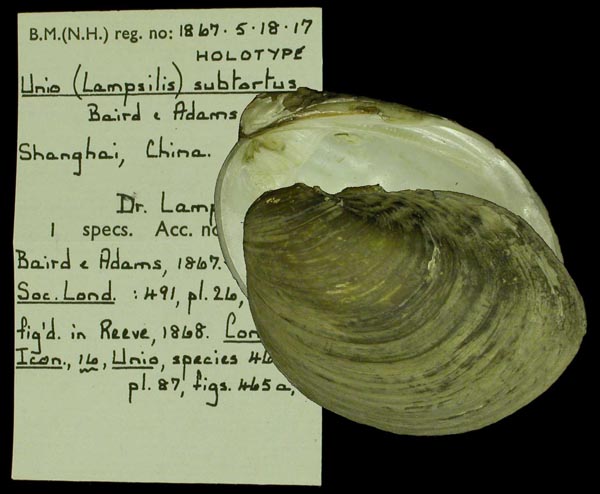 B.M.(N.H.) reg. no: 1867.5.18.17
HOLOTYPE
Unio (Lampsilis) subtortus
Baird & Adams
Shanghai, China.
Dr. Lamp
1 specs. Acc. no
Baird & Adams, 1867.
Soc. Lond. : 491, pl. 26,
fig'd. in Reeve, 1868. Con
Icon., 16, Unio, species 46
pl. 87, figs. 465a,